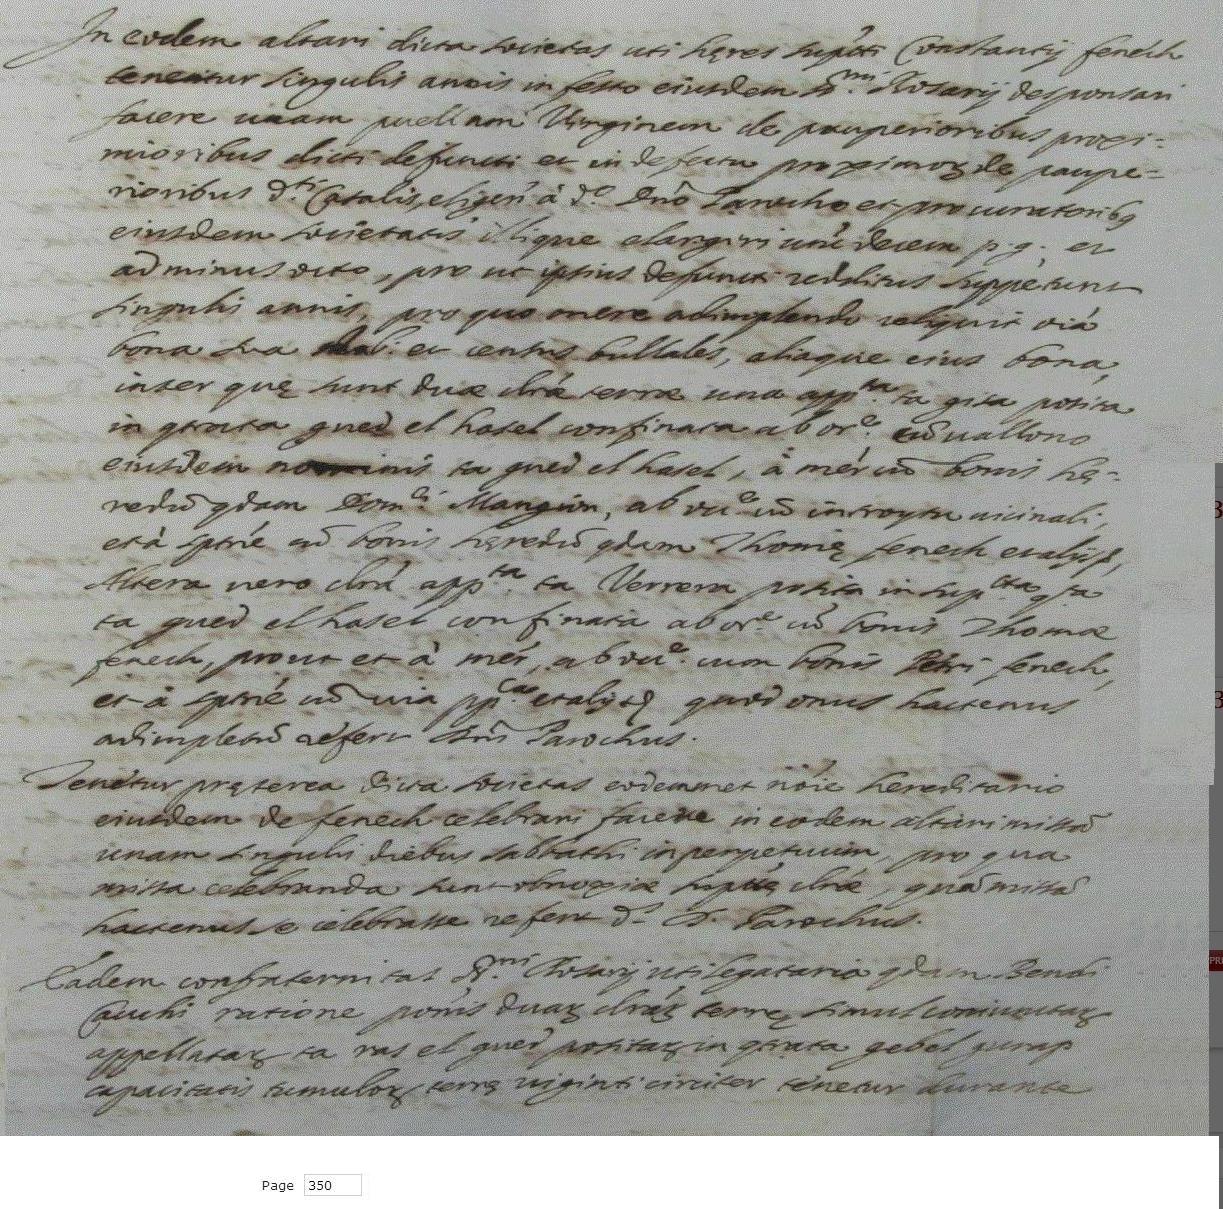 In eodem altari dicta societas uti hęres supᵗᵗⁱ Constantij fenech
tenentur singulis annis in festo eiusdem Sˢᵐⁱ Rosarij desponsari
facere unam puellam Virginem de pauperioribus proxi=
mioribus dicti defuncti et in defectu proximoꝝ de paupe=
rioribus dᵗⁱ Casalis, eligen' à dᵒ Dnō Parocho et procuratoribꝗ
eiusdem societatis illique elargiri unc' decem p. g. et
ad minus dicto, pro ut ipsius defuncti redditus suppetunt
singulis annis, pro quo onere adimplendo reliquit oiá
bona sua stabi: et census bullales, aliaque eius bona,
inter quę sunt duæ clrǽ terræ una appᵗᵃ ta gita posita
in qtrata gued el hasel confinata ab orᵉ cū uallono
eiusdem nominis ta gued el hasel, à mer' cū bonis hę-
redū qdam Domᶜⁱ Mangion, ab occᵉ cū introytu uicinali,
et à sptriē cū bonis hęredū qdam Thomę fenech et alijs,
Altera uero clrá appᵗᵃ ta Verrera posita in supᶜᵗᵃ qtᵃ
ta gued el hasel confinata ab orᵉ cū bonis Thomæ
fenech, prout et à mer', ab occᵉ cum bonis Petri fenech,
et à sptriē cū uia ppᶜᵃ et alijs, quod onus hactenus
adimpletū refert Dnūs Parochus.
Tenētur pręterea dicta societas eodemmet nōie hereditario
eiusdem de fenech celebrari facere in eodem altari missā
unam singulis diebus sabbathi in perpetuum, pro qua
missa celebranda sunt obnoxiæ suptæ clrǽ, quā missā
hactenus se celebrasse refert dˢ D. Parochus.
Eadem confraternitas Sˢᵐⁱ Rosarij uti legataria qdam Bendi
Cauchi ratione pońis duaꝝ clrāꝝ terrę simul coniunctaꝝ
appellataꝝ ta ras el gued positaꝝ in qtrata gebel purap
capacitatis tumuloꝝ terrę uiginti circiter tenetur durante
Page 350